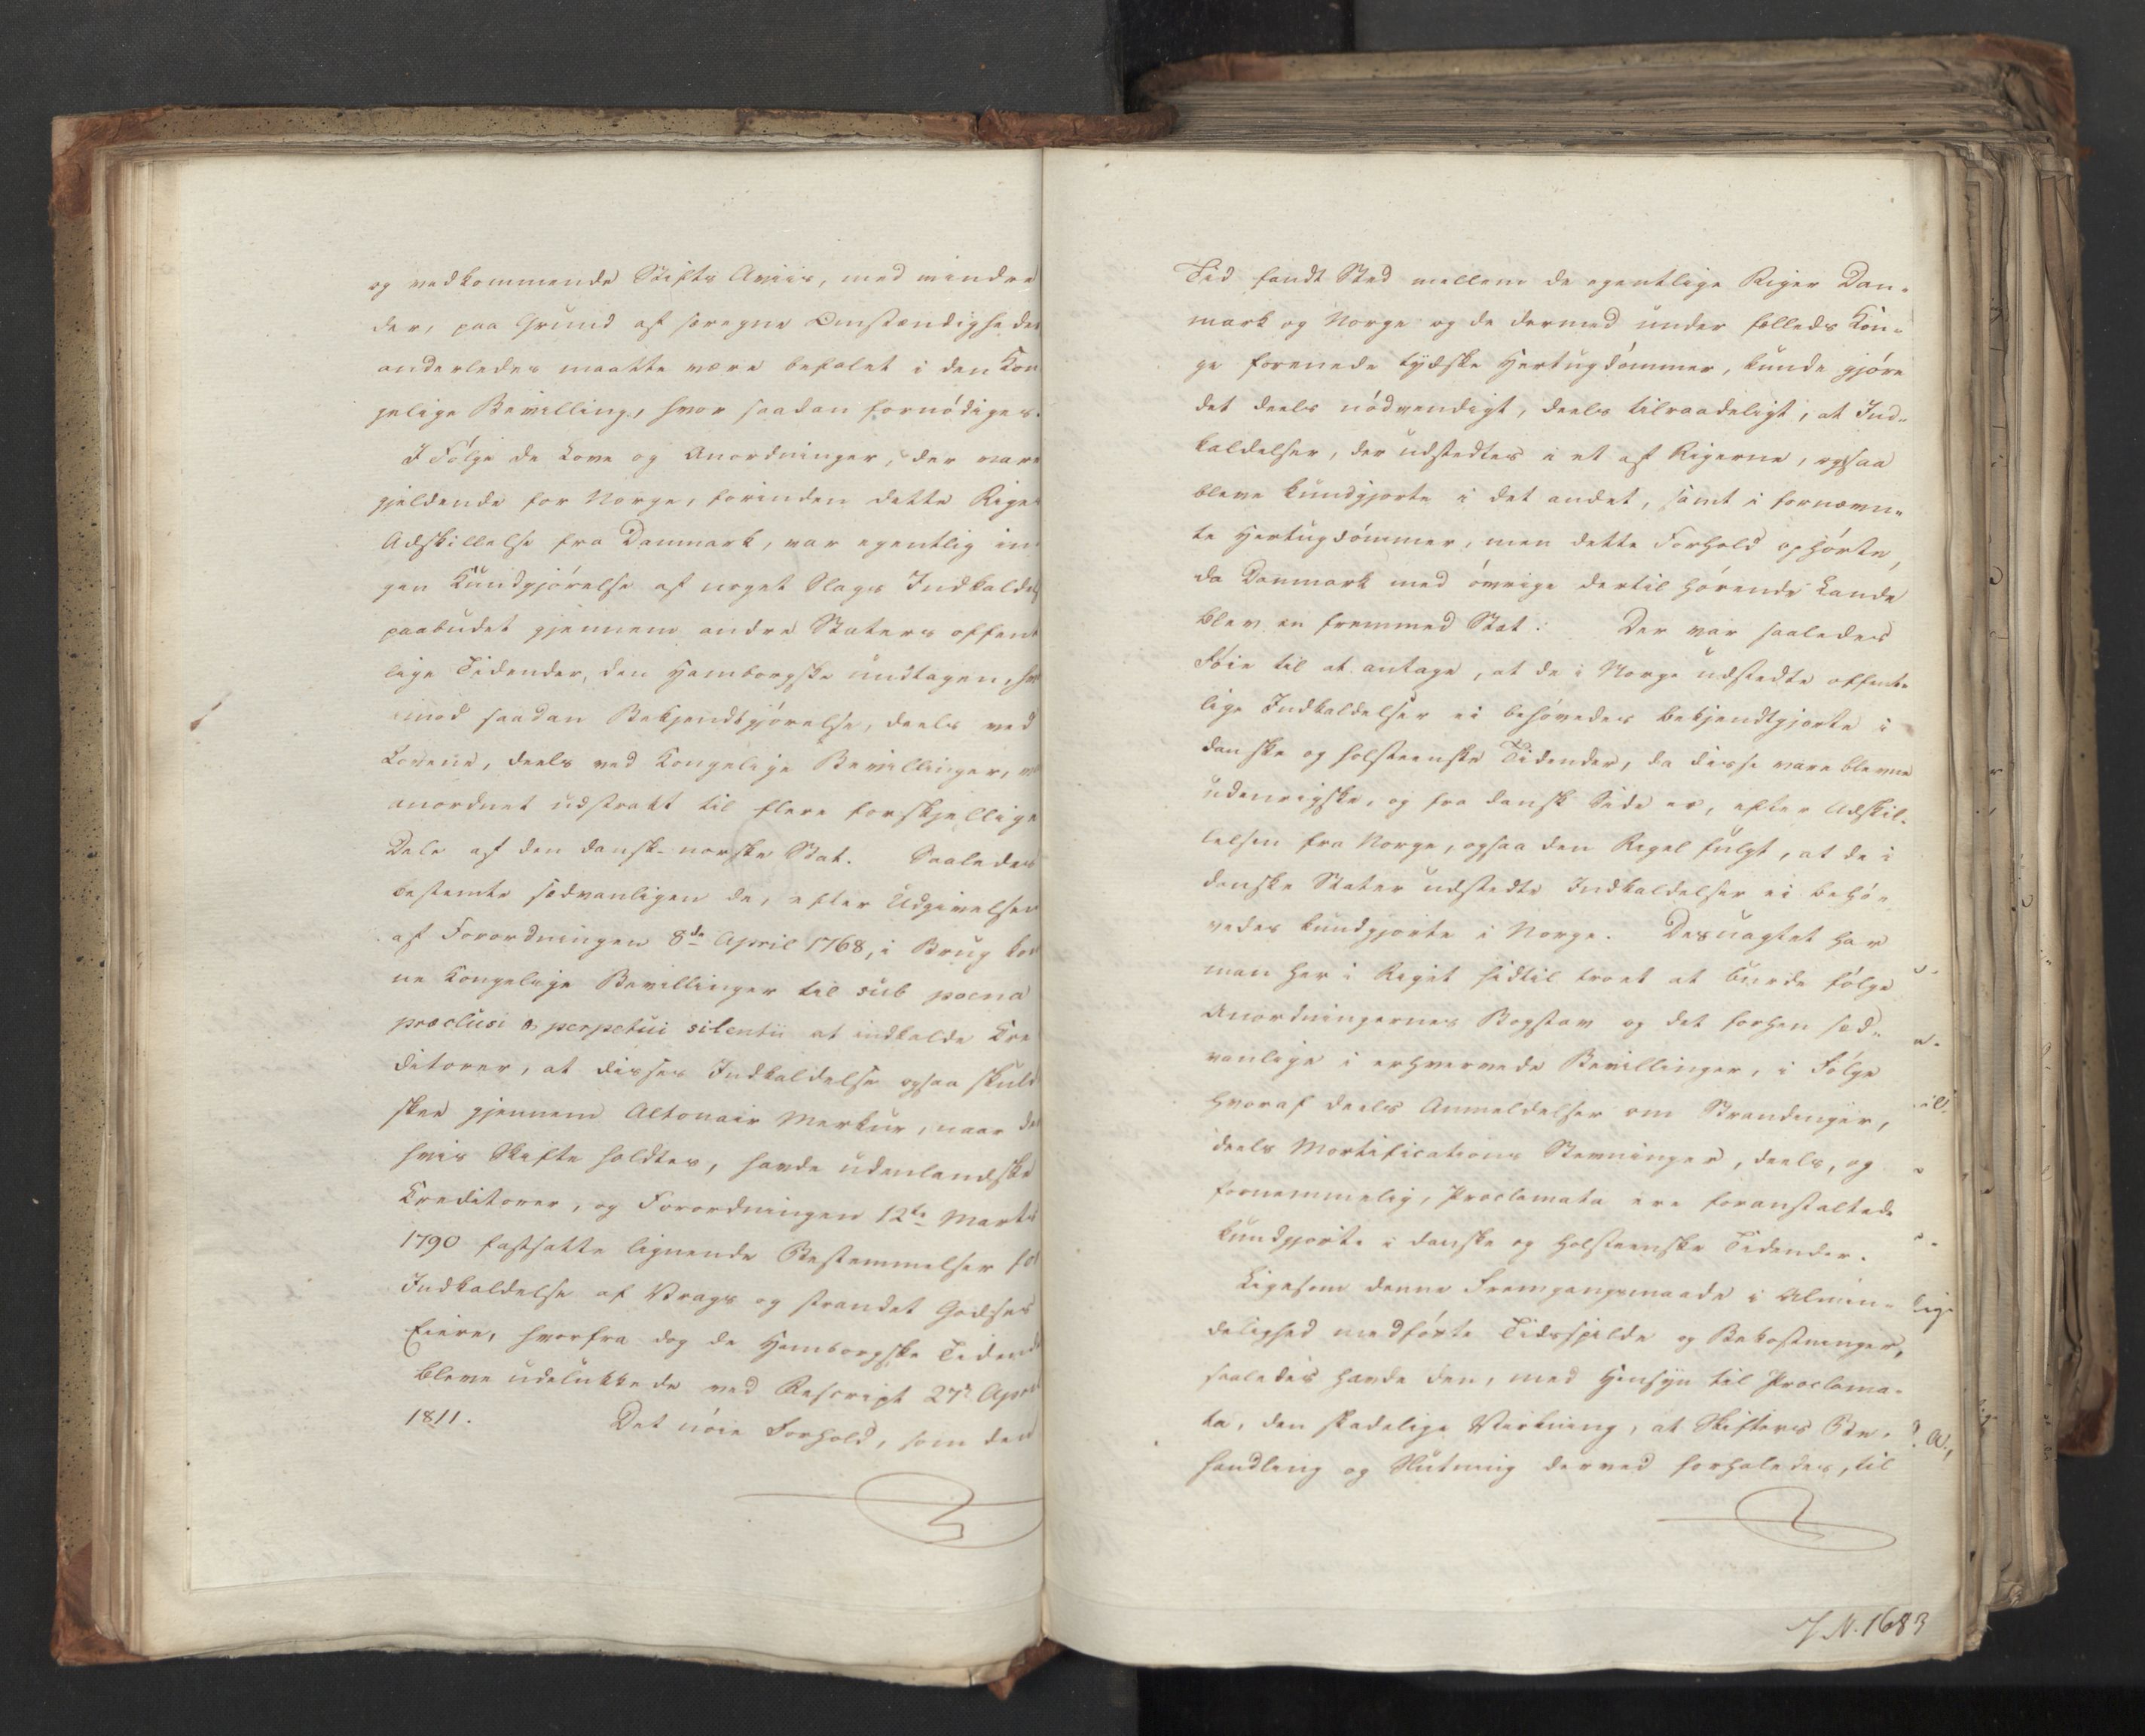 og vedkommende Stifts Aviis, med mindre
der, paa Grund af særegne Omstændigheder
anderledes maatte være befalet i den Kon
gelige Bevilling, hvor saadan fornödiges.
I Fölge de Love og Anordninger, der vare
gjeldende for Norge, forinden dette Riges
Adskillelse fra Danmark, var egentlig in
gen Kundgjörelse af noget Slags Indkaldels
paabudet gjennem andre Staters offent
lige Tidender, den Hamborgske undtagen, hvor
imod saadan Bekjendtgjörelse, deels ved
Lovene, deels ved Kongelige Bevillinger, var
anordnet udstrakt til flere forskjellige
Dele af den dansk-norske Stat. Saaledes
bestemte sædvanligen de, efter Udgivelsen
af Forordningen 8de April 1768, i Brug kom
ne Kongelige Bevillinger til sub poena
præclusi & perpetui silentii at indkalde Kre
ditorer, at disses Indkaldelse ogsaa skuld
skee gjennem Altonaer Merkur, naar den
hvis Skifte holdtes, havde udenlandske
Kreditorer, og Forordningen 12te Marts
1790 fastsatte lignende Bestemmelser for
Indkaldelse af Vrags og strandet Godses
Eiere, hvorfra dog de Hamborgske Tidende
bleve udelukkede ved Rescript 27de April
1811. Det nöie Forhold, som den
Tid fandt Sted mellem de egentlige Riger Dan-
mark og Norge og de dermed under fælleds Kon-
ge forenede tydske Hertugdömmer, kunde gjöre
det deels nödvendigt, deels tilraadeligt, at Ind-
kaldelser, der udstedtes i et af Rigerne, ogsaa
bleve kundgjorte i det andet, samt i fornævn-
te Hertugdömmer, men dette Forhold ophörte,
da Danmark med övrige dertil hörende Lande
blev en fremmed Stat. Der var saaledes
Föie til at antage, at de i Norge udstedte offent-
lige Indkaldelser ei behövedes bekjendtgjorte i
danske og holsteenske Tidender, da disse vare blevne
udenrigske, og fra dansk Side er, efter Adskil-
lelsen fra Norge, ogsaa den Regel fulgt, at de i
danske Stater udstedte Indkaldelser ei behö-
vedes kundgjorte i Norge. Desuagtet har
man her i Riget hidtil troet at burde fölge
Anordningernes Bogstav og det forhen sæd-
vanlige i erhvervede Bevillinger, i Fölge
hvoraf deels Anmeldelser om Strandinger,
deels Mortifications Stevninger, deels, og
fornemmelig, Proclamata ere foranstaltede
kundgjorte i danske og holsteenske Tidender.
Ligesom denne Fremgangsmaade i Almin-
delighed medförte Tidsspilde og Bekostninger,
saaledes havde den, med Hensyn til Proclama-
ta, den skadelige Virkning, at Skifters Be-
handling og Slutning derved forhaledes, til
J. N. 1683